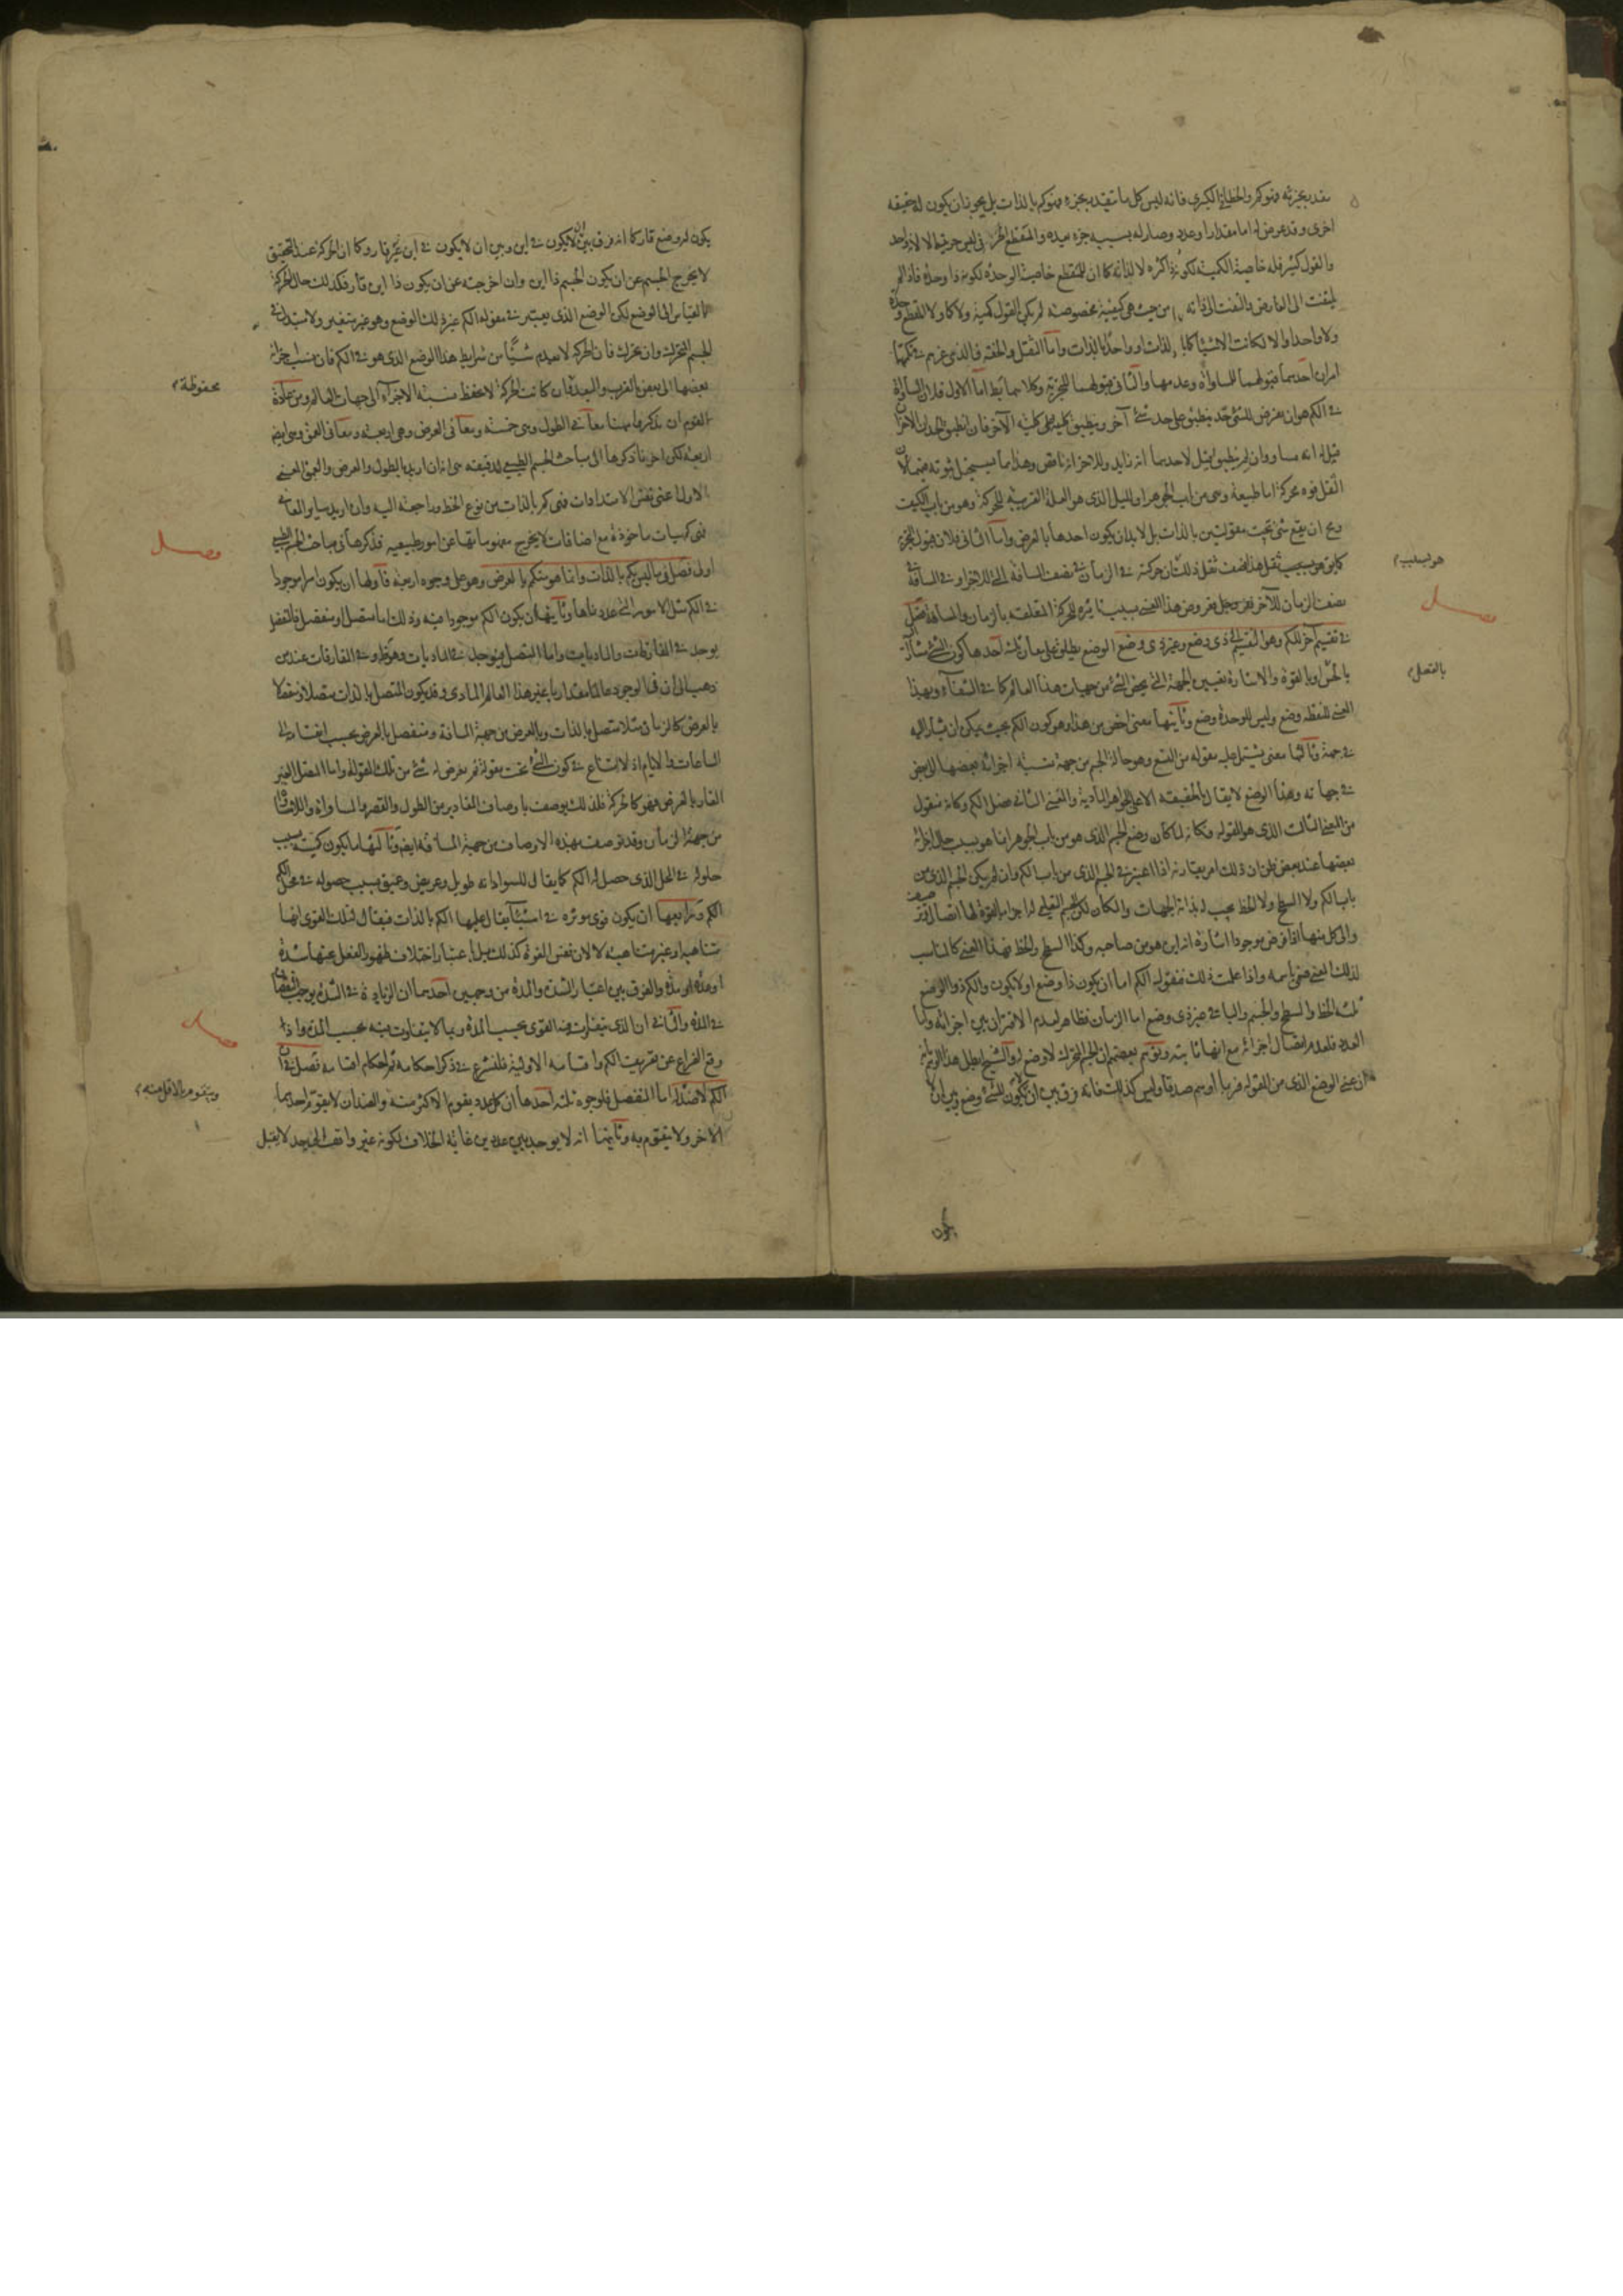 يقدر بجزئه فهو كم والخطاء في الكبرى فانه ليس كل ما يتقدر بجزء فهو كم بالذات بل يجوز ان يكون له حقيقة
اخرى وقد عرض له اما مقدار او عدد وصار له بسببه جزء يعده والمقطع الحرفى ليس جزئيته الا لانه واحد
والقول كثير فله خاصية الكمية لكونه ذا كثرة لا لذاته كما ان للمقطع خاصية الوحدة لكونه ذا وحدة فاذا لم
يلتفت الى العارض والتفت الى ذاته من حيث هي كيفية مخصوصة لم يكن القول كمية ولا كما ولا المقطع وحدة
ولا واحدا والا لكانت الاشياء كلها بالذات او واحدا بالذات واما الثقل والخفة فالذي غرهم في كميتهما
امران احدهما قبولهما للمساواة وعدمها والثاني قبولهما للتجزية وكلاهما بط اما الاول فلان المساواة
في الكم هو ان يفرض للشئ حد ينطبق على حد شئ آخر وينطبق كليته على كلية الآخر فان انطبق الحدان الآخران
قيل له انه مساو وان لم ينطبق قيل لاحدهما انه زايد وللاخر انه ناقص وهذا ما يستحيل ثبوته فيهما لان
الثقل قوة محركة اما طبيعة وهي من باب الجوهر او الميل الذي هو العلة القريبة للحركة وهو من باب الكيف
ومح ان يقع شئ تحت مقولتين بالذات بل لابد ان يكون احدها بالعرض واما الثاني فلان قبول التجزية
كما يق هو بسبب ثقل هذا نصف ثقل ذلك لان حركته في الزمان في نصف المسافة الى للاخر او في المسافة في
نصف الزمان للآخر
في تقسيم آخر للكم وهو التقسيم الى ذي وضع وغير ذي وضع الوضع يطلق على معان ثلث احدها كون الشئ مشارا
بالحس او بالقوة والاشارة تعيين الجهة التي تخص الشئ من جهات هذا العالم كما في الشفاء وبهذا
المعنى للنقطة وضع وليس للوحدة وضع وثانيها معنى اخص من هذا وهو كون الكم بحيث يمكن ان يشار اليه
في جهة وثالثها معنى يشتمل عليه مقولة من التسع وهو حالة الجسم من جهة نسبة اجزائه بعضها الى بعض
في جهاته وهذا الوضع لايقال بالحقيقة الا على الجواهر المادية والمعنى الثاني فصل الكم وكانه منقول
من المعنى الثالث الذي هو المقولة فكانه لما كان وضع الجسم الذي هو من باب الجوهر انما هو بسبب حال اجزائه
بعضها عند بعض ظن ان ذلك امر يقارنه اذا اعتبر في الجسم الذي من باب الكم وان لم يكن الجسم الذي من
باب الكم ولا السطح ولا الخط بحسب لذاته الجهات والمكان لكن الجسم التعليمي له اجزاء بالقوة لها اتصال
والى كل منها اذا فرض موجودا اشارة انه اين هو من صاحبه وكذا السطح والخط فهذا المعنى كالمناسب
لذلك المعنى فسمي باسمه واذا علمت ذلك فنقول الكم اما ان يكون ذا وضع او لا يكون والكم ذو الوضع
ثلثة الخط والسطح والجسم والباقي غير ذي وضع اما الزمان فظاهر لعدم الاقتران بين اجزائه واما
العدد فلعدم اتصال اجزائه مع انها ثابتة وتوهم بعضهم ان الجسم المتحرك لا وضع له والشيخ ابطل هذا الوهم بانه
ان عني الوضع الذي من المقولة فربما اوهم صدقا وليس كذلك فانه فرق بين ان يكون للشئ وضع وبين ان
هو بسبب
فصل
بالفعل
يكون
يكون له وضع قار كما انه فرق بين ان لا يكون في اين وبين ان لا يكون في اين غير قار وكما ان الحركة عند التحقيق
لا يخرج الجسم عن ان يكون الجسم ذا اين وان اخرجته عن ان يكون ذا اين قار فكذلك حال الحركة
بالقياس الى الوضع لكن الوضع الذي يعتبر في مقولة الكم غير ذلك الوضع وهو غير متغير ولا متبدل في
الجسم المتحرك وان تحرك فان الحركة لا تعدم شيئا من شرايط هذا الوضع الذي هو في الكم فان نسب اجزائه
بعضها الى بعض بالقرب والبعد وان كانت الحركة لا تحفظ نسبة الاجزاء الى جهات العالم ومن عادة
القوم ان يذكروا ههنا معاني الطول وهي خمسة ومعاني العرض وهي اربعة ومعاني العمق وهي ايضا
اربعة لكن اخرنا ذكرها الى مباحث الجسم الطبيعي لدقيقة هي انه ان اريد بالطول والعرض والعمق المعنى
الاول اعني نفس الامتدادات فهي كم بالذات من نوع الخط وراجعة اليه وان اريد ساير المعاني
فهي كميات ماخوذة مع اضافات لا يخرج مفهوماتها عن امور طبيعية فذكرها في مباحث الجسم الطبيعي
اولى فصل في ما ليس بكم بالذات وانما هو متكم بالعرض وهو على وجوه اربعة فاولها ان يكون امرا موجودا
في الكم مثل الامور التي عددناها وثانيها ان يكون الكم موجودا فيه وذلك اما متصل او منفصل فالمنفصل
يوجد في المفارقات والماديات واما المتصل فيوجد في الماديات وهو ظ وفي المفارقات عند من
ذهب الى ان في الوجود عالما مقداريا غير هذا العالم المادي وقد يكون المتصل بالذات متصلا ومنفصلا
بالعرض كالزمان متصل بالذات وبالعرض من جهة المسافة ومنفصل بالعرض بحسب انقسامه الى
الساعات والايام اذ لا امتناع في كون الشئ تحت مقولة ثم يعرض له شئ من تلك المقولة واما المتصل الغير
القار بالعرض فهو كالحركة فلذلك يوصف باوصاف المقادير من الطول والقصر والمساواة واللامساواة
من جهة الزمان وقد توصف بهذه الاوصاف من جهة المسافة ايضا وثالثها ما يكون كمية بسبب
حلوله في المحل الذي حصل له الكم كما يقال للسواد انه طويل وعريض وعميق بسبب حصوله في محل الكم
الكم ورابعها ان يكون قوى موثرة في اشياء يقال عليها الكم بالذات فيقال لتلك القوى انها
متناهية او غير متناهية لا لان نفس القوة كذلك بل باعتبار اختلاف ظهور الفعل عنها شدة
او عدة او مدة والفرق بين اعتبار الشدة والمدة من وجهين احدهما ان الزيادة في الشدة يوجب النقصان
في المدة والثاني ان الذي يتفاوت فيه القوى بحسب المدة ربما لا يتفاوت فيه بحسب الشدة واذا
وقع الفراغ عن تعريف الكم واقسامه الاولية فلنشرع في ذكر احكامه ثم احكام اقسامه فصل في ان
الكم لا ضد له اما المنفصل فلوجوه ثلثة احدها ان كل عدد يتقوم به الاكثر منه والضدان لا يتقوم احدهما
الآخر ولا يتقوم به وثانيها انه لا يوجد بين عددين غاية الخلاف لكونه غير واقف الى حد لا يقبل
محفوظة
فصل
فصل
ويتقوم بالاقل منه